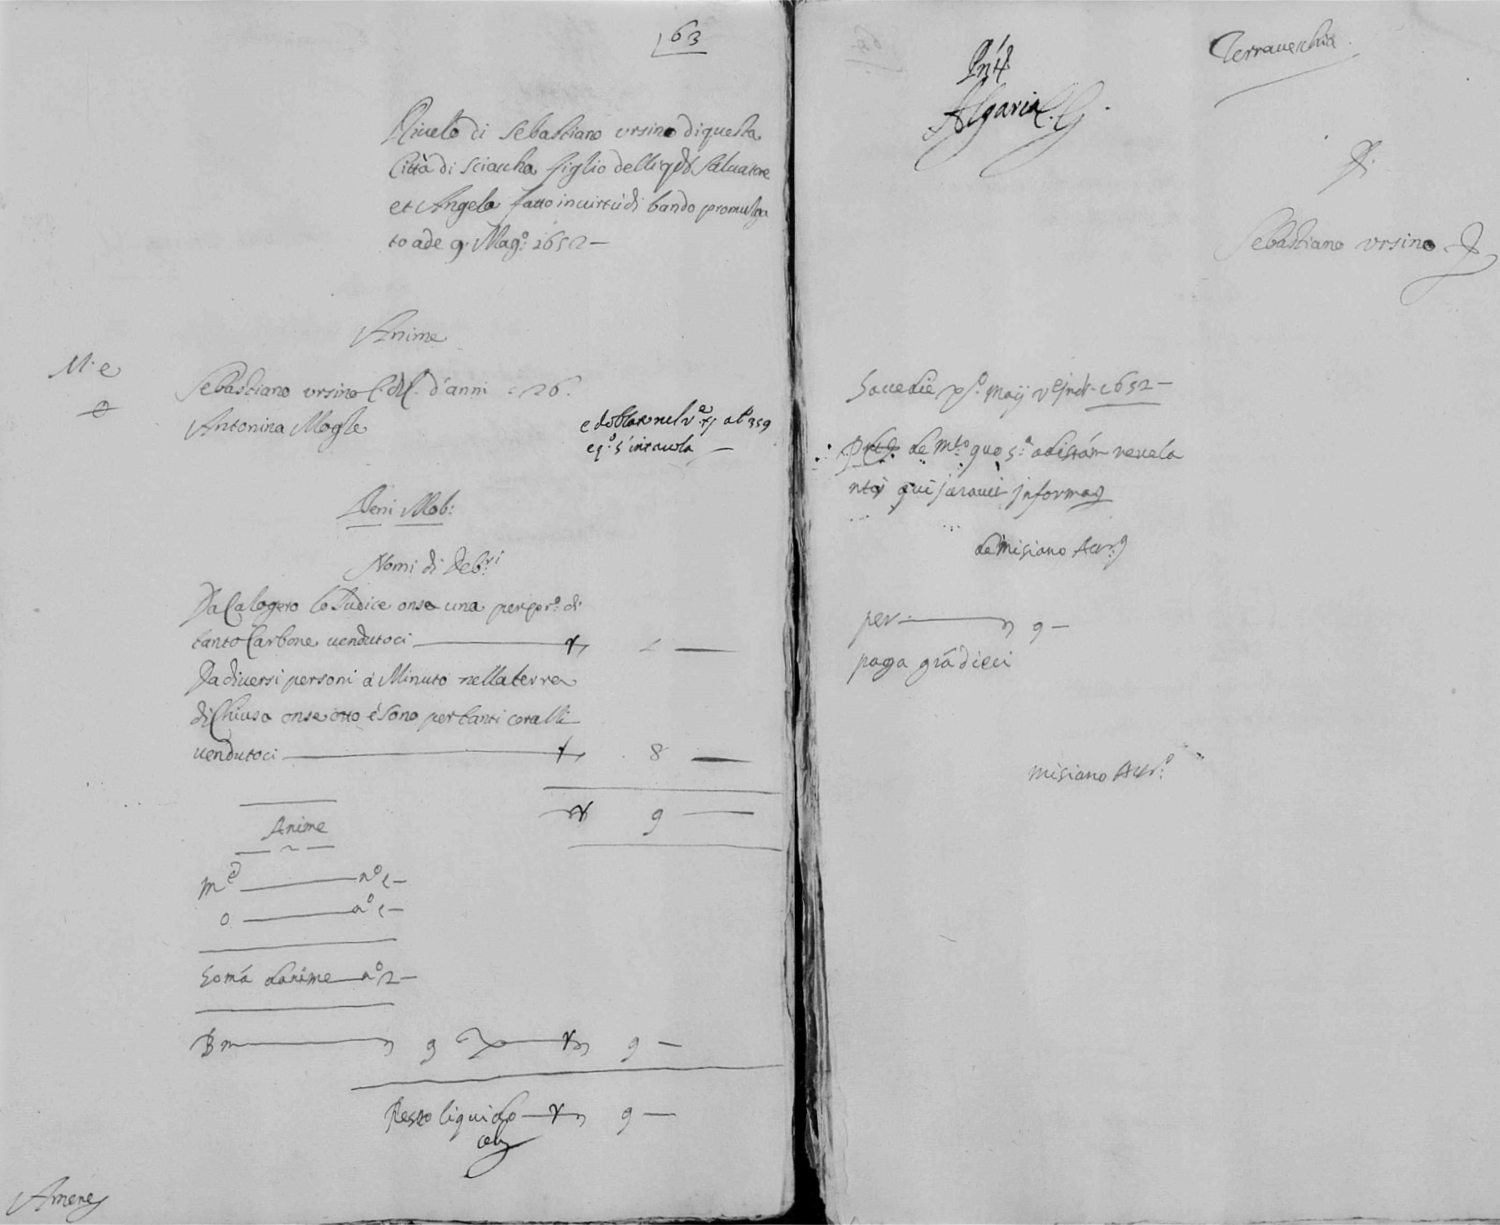 63
Rivelo di Sebastiano ursino di questa
Città di Sciascha figlio delli qdm Salvatore
et Angela fatto in virtù di bando promulga
to a de 9 Magº 1652 —
Anime
M. e
Sebastiano ursino C. di C. d'anni 26.
Antonina Mogle
e doblato nel vº al fº 359
e qº s'intavola —
Beni Mob:
Nomi di Debri
Da Calogero lo Iudice onse una per przº di
tanto Carbone vendutoci — 1 —
Da diversi personi a Minuto nella terra
di Chiusa onse otto è sono per tanti coralli
vendutoci — 8 —
9 —
Anime
me — nº 1 —
o — nº 1 —
Somá d'anime — nº 2 —
B m — 9 — 9 —
Resto liquido — 9 —
Amene
Algaria
Terravechia
Sebastiano ursino
Sacce die pº Maij Ve Ind. 1652 —
de mto quo sª revela
ntis qui juravit informaq
de Misiano
per — 9 —
paga grá dieci
Misiano